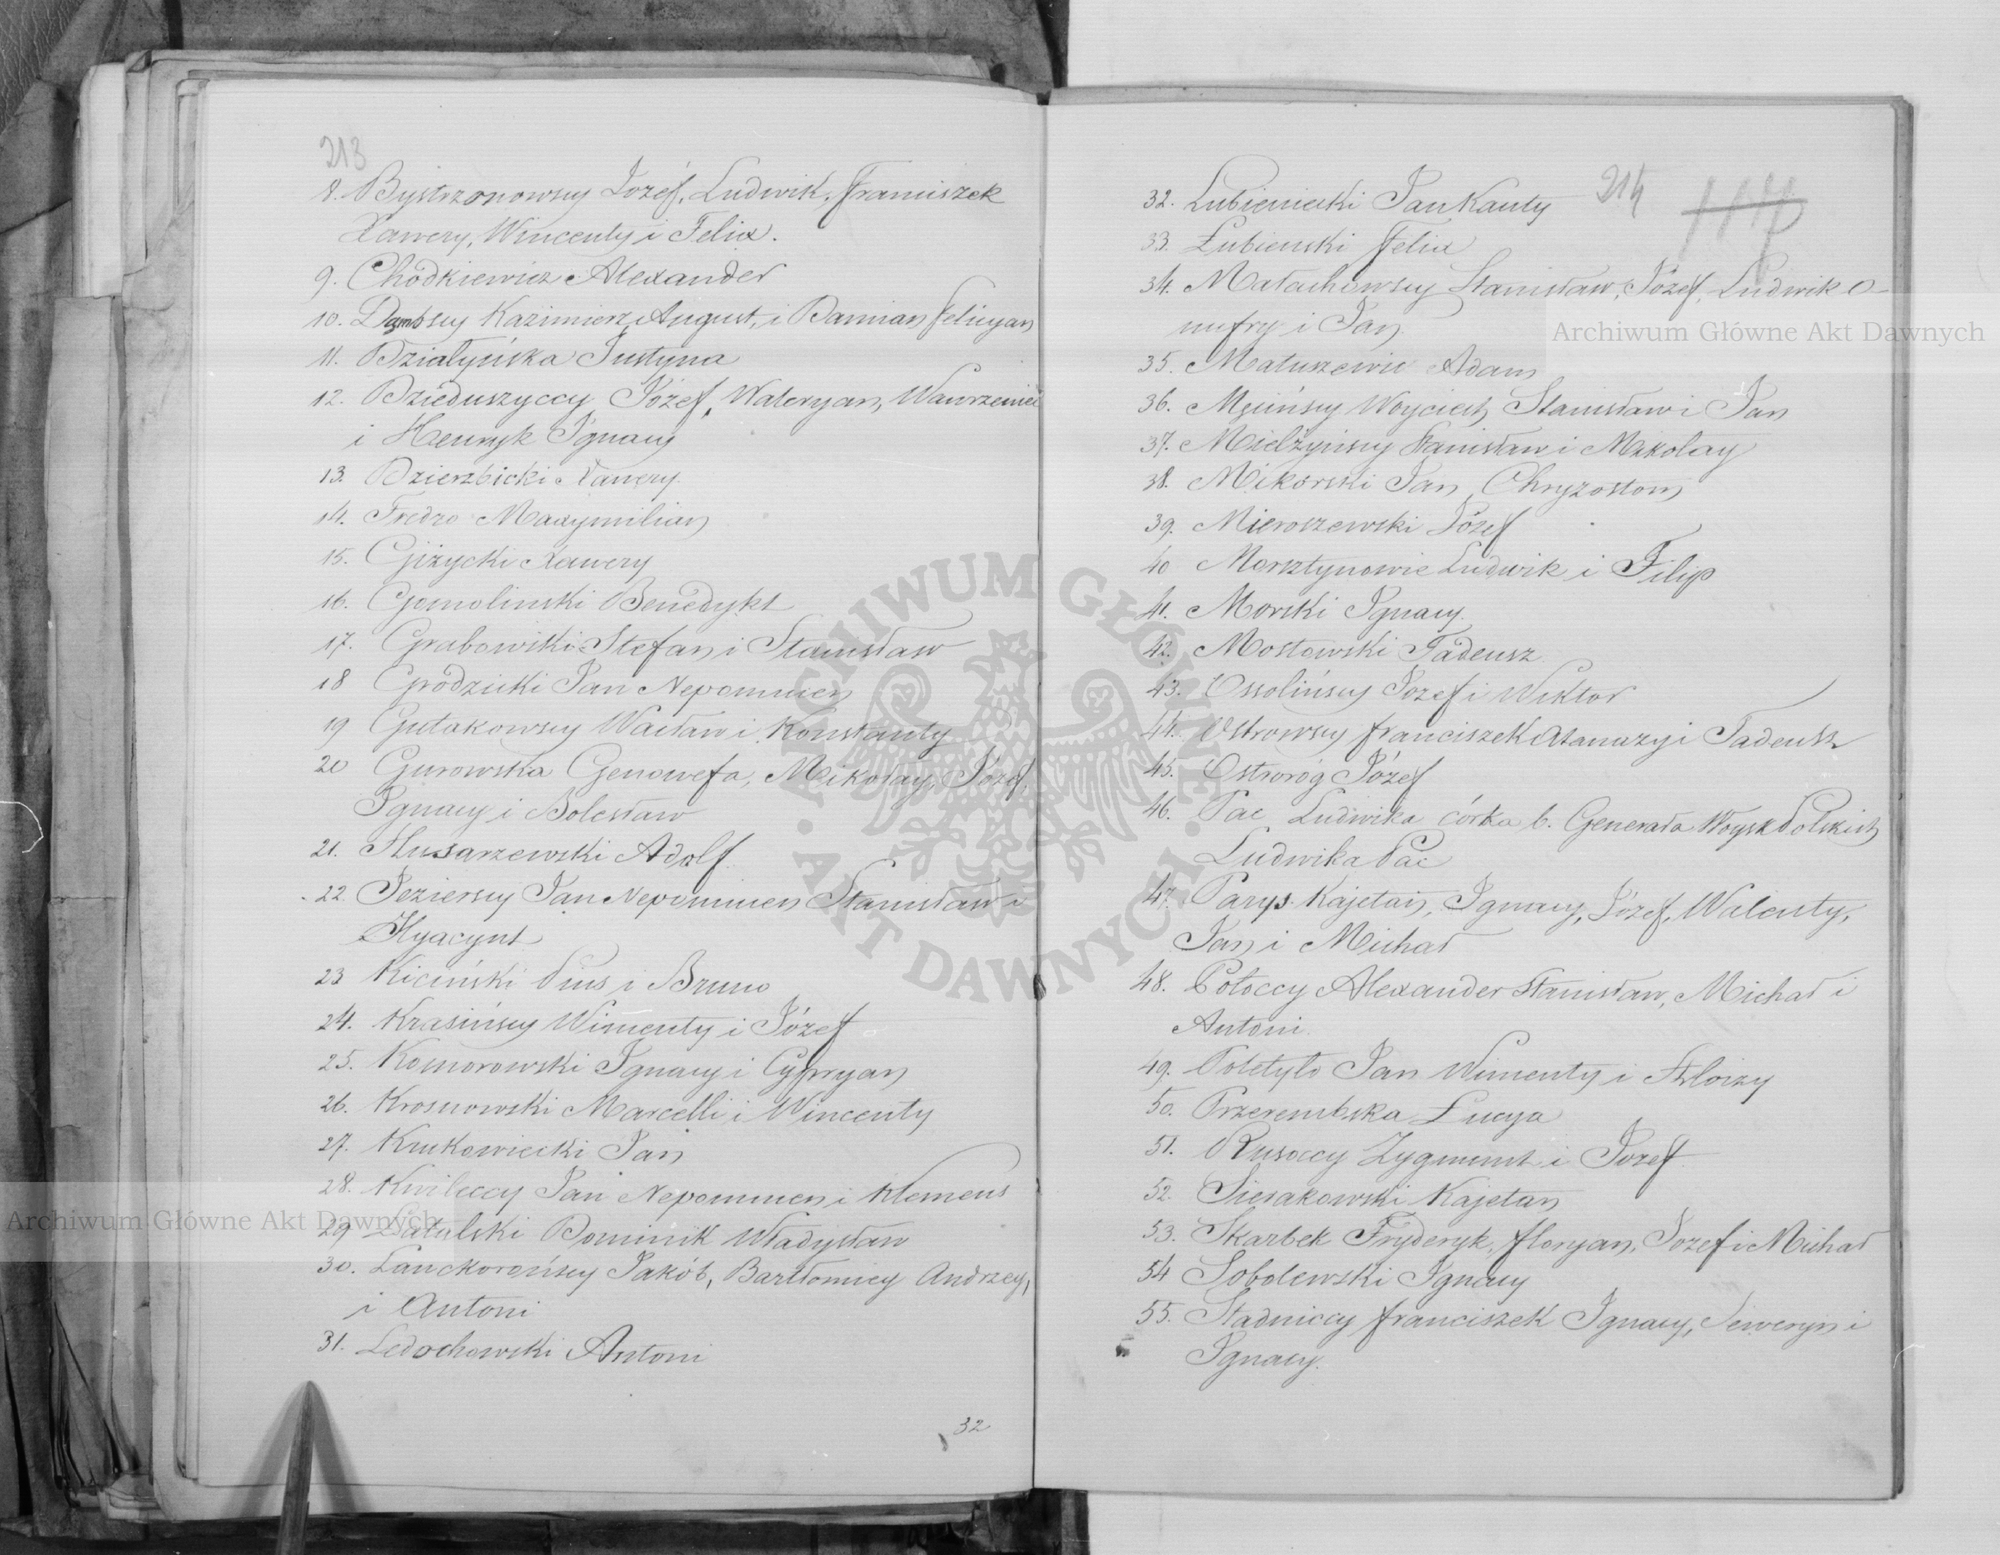 213
8. Bystrzonowscy Józef, Ludwik, Franciszek
Xawery, Wincenty i Felix.
9. Chodkiewicz Alexander
10. Dąmbscy Kazimierz, August, i Damian Felicyan
11. Działyńska Justyna
12. Dzieduszyccy Józef, Waleryan, Wawrzeniec
i Henryk Ignacy
13. Dzierzbicki Xawery.
14. Fredro Maxymilian
15. Giżycki Xawery
16. Gomolinski Benedykt
17. Grabowski Stefan i Stanisław
18 Grodzicki Jan Nepomucen
19 Gutakowscy Wacław i Konstanty
20 Gurowska Genowefa, Mikołay, Józef,
Ignacy i Bolesław
21. Husarzewski Adolf.
22. Jeziersscy Jan Nepomucen Stanisław i
Hyacynt
23 Kiciński Pius i Bruno
24. Krasińscy Wincenty i Józef
25. Komorowski Ignacy i Cypryan
26. Krosnowski Marcelli i Wincenty
27. Krukowiecki Jan
28. Kwileccy Jan Nepomucen i Klemens
29 Łatulski Dominik Władysław
30. Lanckorońscy Jakób, Bartłomiey Andrzey,
i Antoni
31. Ledochowski Antoni
32
214
32. Lubieniecki Jan Kanty
33. Łubienski Felix
34. Małachowscy Stanisław, Józef, Ludwik O-
nufry i Jan.
35. Matuszewic Adam
36. Męcińscy Woyciech, Stanisław i Jan
37. Mielżyńscy Stanisław i Mikolay
38. Mikorski Jan Chryzostom
39. Mieroszewski Józef
40 Morsztynowie Ludwik i Filip
41. Morski Ignacy.
42. Mostowski Tadeusz
43. Ossolińscy Józef i Wiktor
44. Ostrowscy Franciszek Atanazy i Tadeusz
45. Ostroróg Józef
46. Pac Ludwika córka b. Generała Woysk Polskich
Ludwika Pac
47. Parys Kajetan, Ignacy, Józef, Walenty,
Jan i Michał
48. Potoccy Alexander Stanisław, Michał i
Antoni.
49. Poletyło Jan Wincenty i Aloizy
50. Przerembska Łucya
51. Rusoccy Zygmunt i Józef
52. Sierakowski Kajetan
53. Skarbek Fryderyk, Floryan, Józef i Michał
54 Sobolewski Ignacy
55. Stadniccy Franciszek Ignacy, Seweryn i
Ignacy.
Archiwum Główne Akt Dawnych
Archiwum Główne Akt Dawnych
ARCHIWUM GŁÓWNE
AKT DAWNYCH